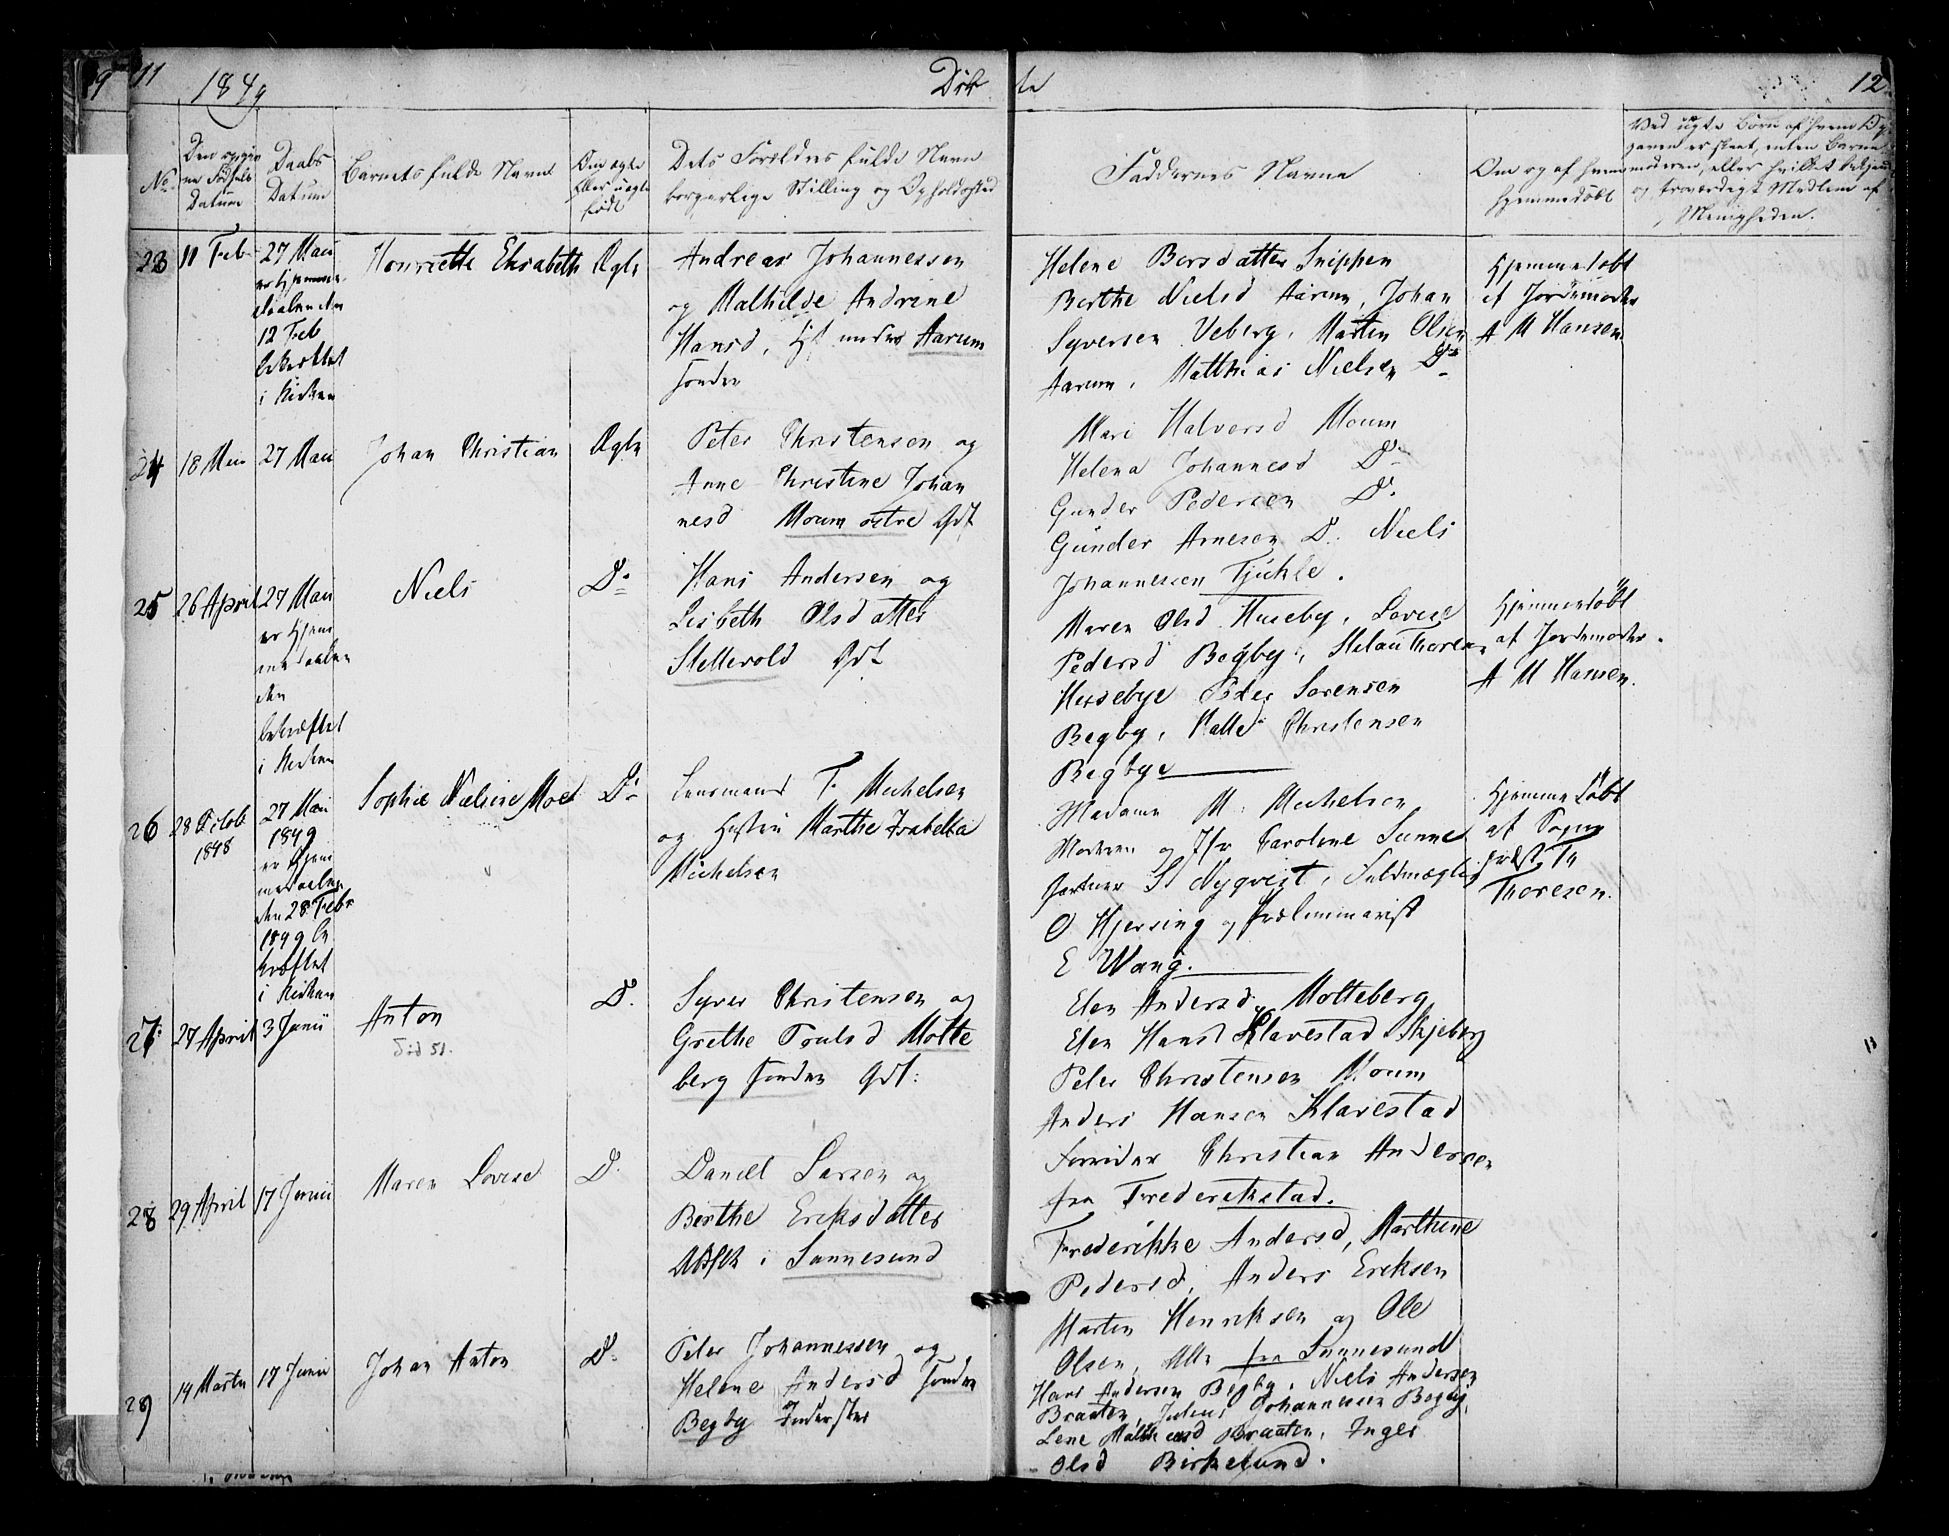 11
1849
Døb
te
12
No
Den opgivne Fødsels Datum
Daabs Datum
Barnets fulde Navn
Om ægte eller uægte født
Dets Forældres fulde Navn
borgerlige Stilling og Opholdssted
Faddernes Navne
Om og af hvem
hjemmedøbt
Ved uægte Børn af hvem
moderen, eller hvilket
og troværdigt Medlem af
Menigheden.
23
11 Feb
27 Mai
er hjemme
12 Feb
bekræftet
i Kirken
Henriette Elisabeth
Ægte
Andreas Johannessen
og Mathilde Andrine
Hansd, under Aarum
søndre
Helene Borsdatter Snippen
Berthe Nielsd Aarum, Johan
Syversen Veberg, Martin Olsen
Aarum, Matthias Nielsen Do
Hjemmedøbt
af Jordemoder
A M Hansen
24
18 Mai
27 Mai
Johan Christian
Ægte
Peter Christensen og
Anne Christine Johan
nesd Moum østre Gdt
Mari Halvorsd Moum
Helena Johannesd Do
Gunder Pedersen Do
Gunder Arnesen D. Niels
Johannessen Tjuhle.
25
26 April
27 Mai
er hjem
medaaben
den
bekræftet
i Kirken
Niels
Do
Hans Andersen og
Lisbeth Olsdatter
Stellevold Gdt
Maren Olsd Huseby, Lovise
Pedersd Begby,
Husebye Peder Sørensen
Begby, Christensen
Begbye
Hjemmedøbt
af Jordemoder
A M Hansen.
26
28 Octob
1848
27 Mai
1849
er hjem
medaaben
den 28 Feb
1849 be
kræftet
i Kirken
Sophie Nielsine Moe
Do
Lensmand F. Michelsen
og Hustru Marthe Isabella
Michelsen
Madame M. Michelsen
Moderen og Jfr Caroline Sunne
S Nyqvist, Fuldmægtig
O Hjersing og Præliminarist
E Wang.
Hjemmedøbt
af Sogne
præst Th
Thoresen.
27
27 April
3 Junii
Anton
Død 51.
D.
Syver Christensen og
Grethe Trulsd Molte
berg søndre Gdt:
Elen Andersd, Molteberg
Elen Hansd Klavestad Skjeberg
Peter Christensen Moum
Anders Hansen Klavestad
Christian Andersen
fra Frederikstad.
28
29 April
17 Junii
Maren Lovise
D.
Daniel Larsen og
Berthe Eriksdatter
i Sannesund
Frederikke Andersd, Marthine
Pedersd, Anders Eriksen
Morten Henriksen og Ole
Olsen, Alle fra Sannesund
29
14 Martii
17 Junii
Johan Anton
D.
Peter Johannessen og
Helene Andersd søndre
Begby Inderster
Hans Andersen Begby, Niels Andersen
Braaten, Julius Johannessen Begby,
Lene Mathiasd Braaten, Inger
Olsd Birkelund.